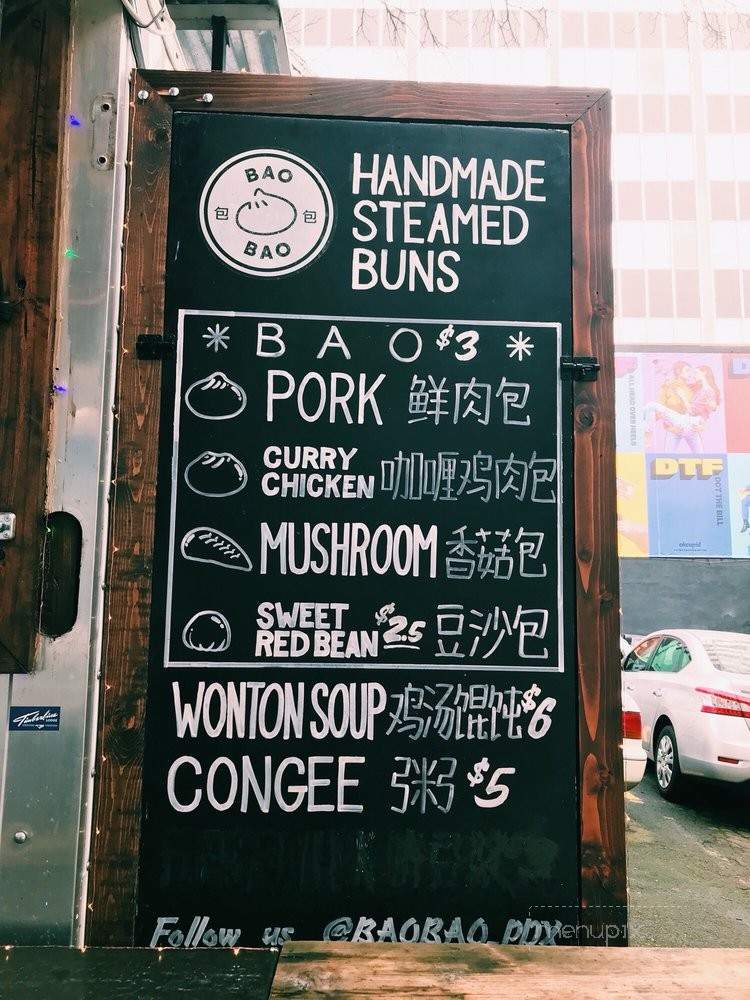 BAO
包 包
BAO
HANDMADE
STEAMED
BUNS
* BAO $3 *
PORK 鲜肉包
CURRY
CHICKEN 咖喱鸡肉包
MUSHROOM 香菇包
SWEET
RED BEAN $2.5 豆沙包
WONTON SOUP 鸡汤馄饨 $6
CONGEE 粥 $5
Follow us @BAOBAO_PDX
Timberline
DTF
ALL HEAD OVER HEELS
DOT THE BILL
okcupid
menupix